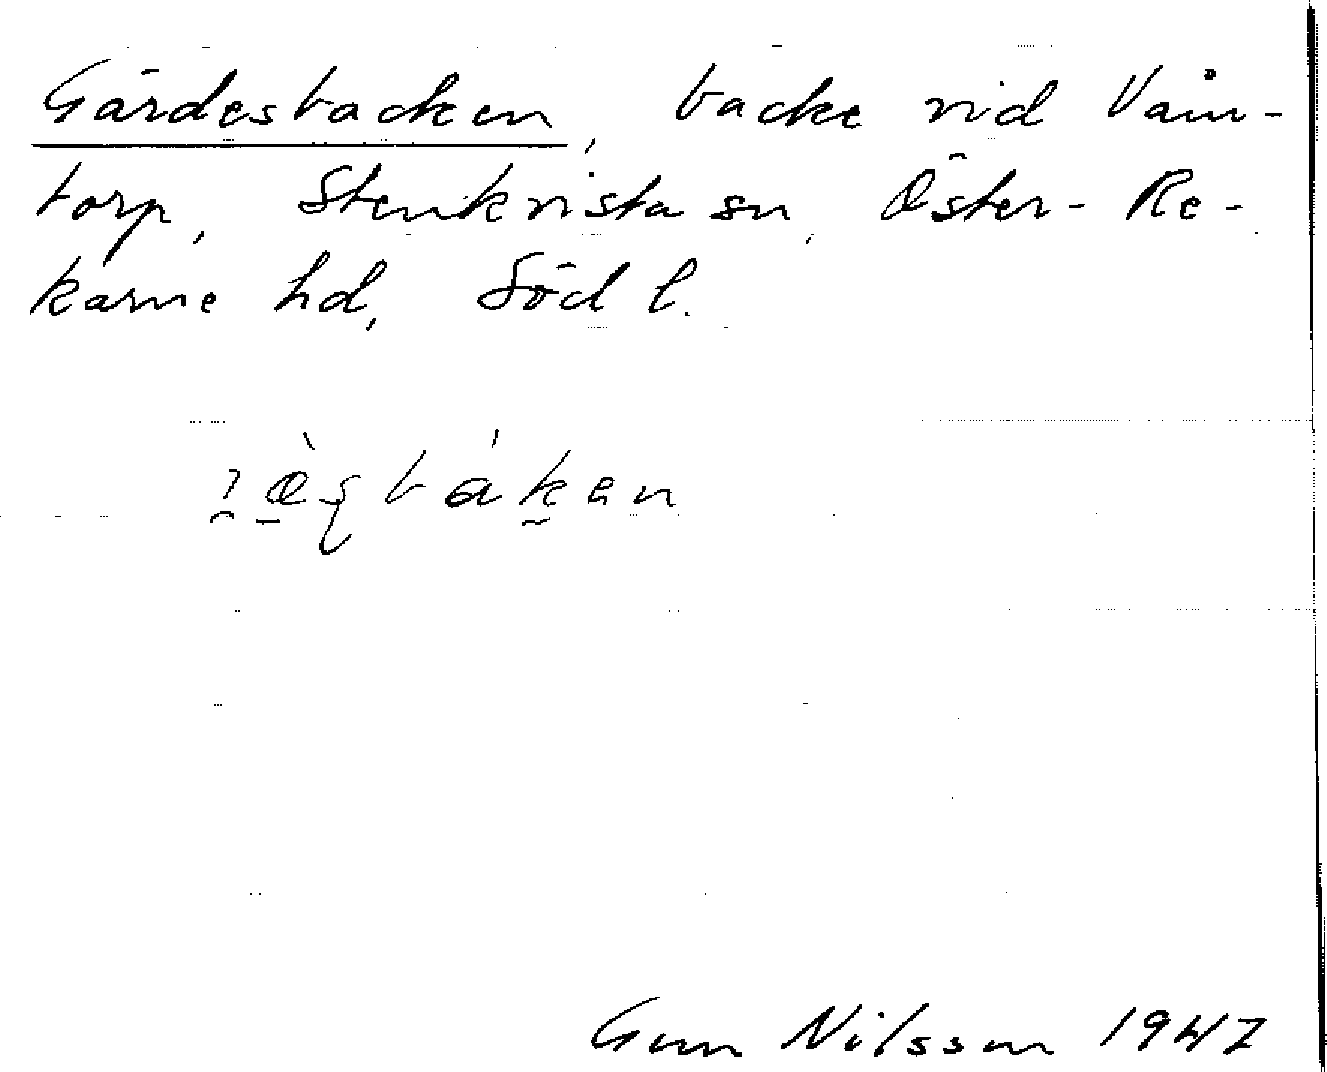 Gärdesbacken, backe vid Våm-
torp, Stenkvista sn, Öster-Re-
karne hd, Södl.
Gun Nilsson 1947